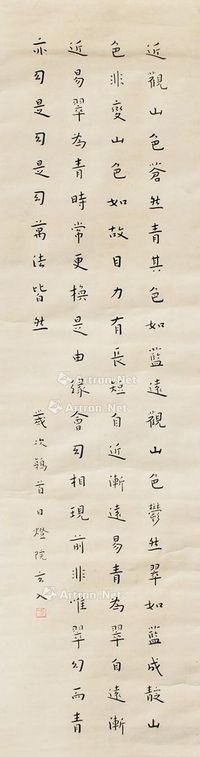 近觀山色蒼然青其色如藍遠觀山色鬱然翠如藍成靛山
色非變山色如故目力有長短自近漸遠易青為翠自遠漸
近易翠為青時常更換是由緣會幻相現前非唯翠幻而青
亦幻是幻是幻萬法皆然 歲次鶉首日燈院玄入
Artron.Net
Artron.Net
Artron.Net